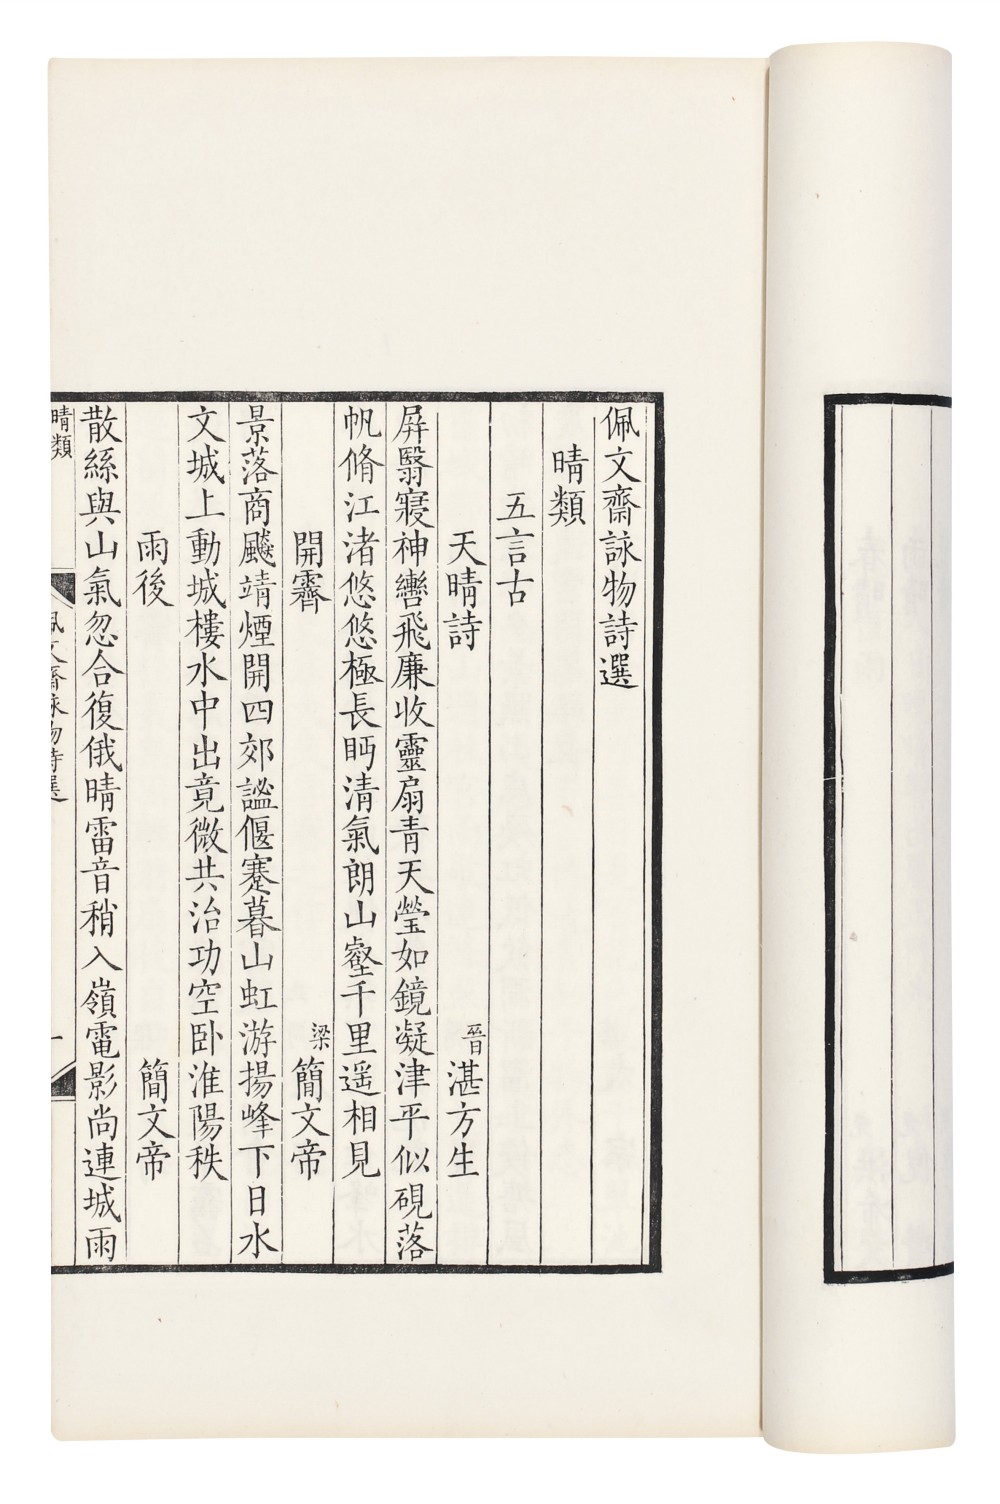 佩文齋詠物詩選
晴類
五言古
天晴詩 晉 湛方生
屏翳寢神轡飛廉收靈扇青天瑩如鏡凝津平似硯落
帆脩江渚悠悠極長眄清氣朗山壑千里遥相見
開霽 梁 簡文帝
景落商飈靖煙開四郊謐偃蹇暮山虹游揚峰下日水
文城上動城樓水中出竟微共治功空卧淮陽秩
雨後 簡文帝
散絲與山氣忽合復俄晴雷音稍入嶺電影尚連城雨
晴類
佩文齋詠物詩選
一